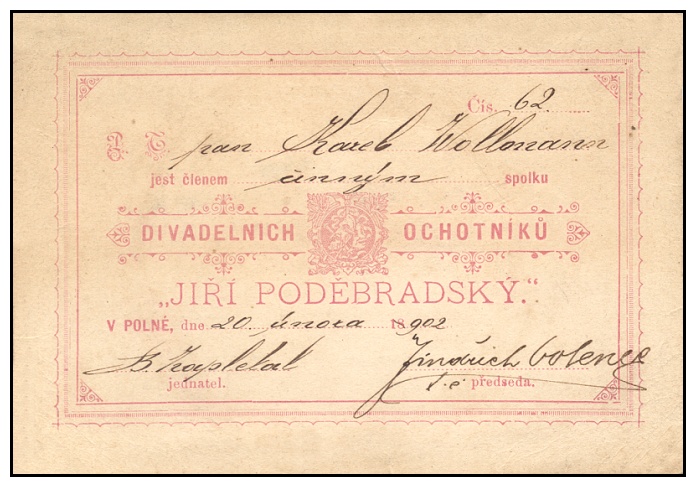 Čís. 62.
P. T. pan Karel Wollmann
jest členem činným spolku
DIVADELNICH OCHOTNÍKŮ
„JIŘÍ PODĚBRADSKÝ.“
V POLNÉ, dne 20. února 1902
B. Zapletal Jindřich
jednatel. předseda.